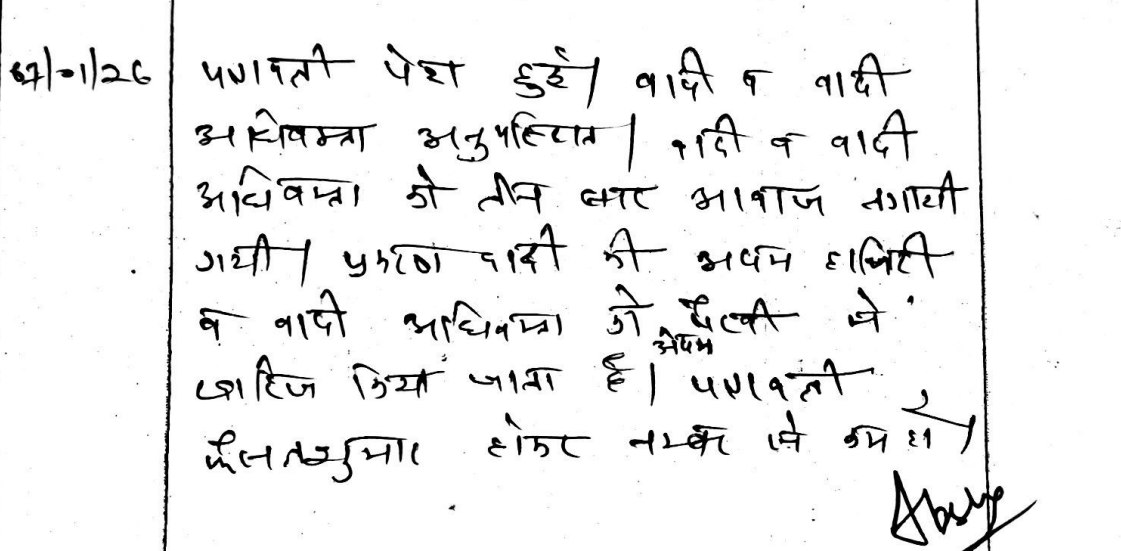 07/01/26 पत्रावली पेश हुई। वादी व वादी
अधिवक्ता अनुपस्थित। वादी व वादी
अधिवक्ता को तीन बार आवाज लगायी
गयी। प्रकरण वादी की अदम हाजिरी
व वादी अधिवक्ता की अदम पैरवी में
खारिज किया जाता है। पत्रावली
फैसलशुमार होकर नम्बर से कम हो।